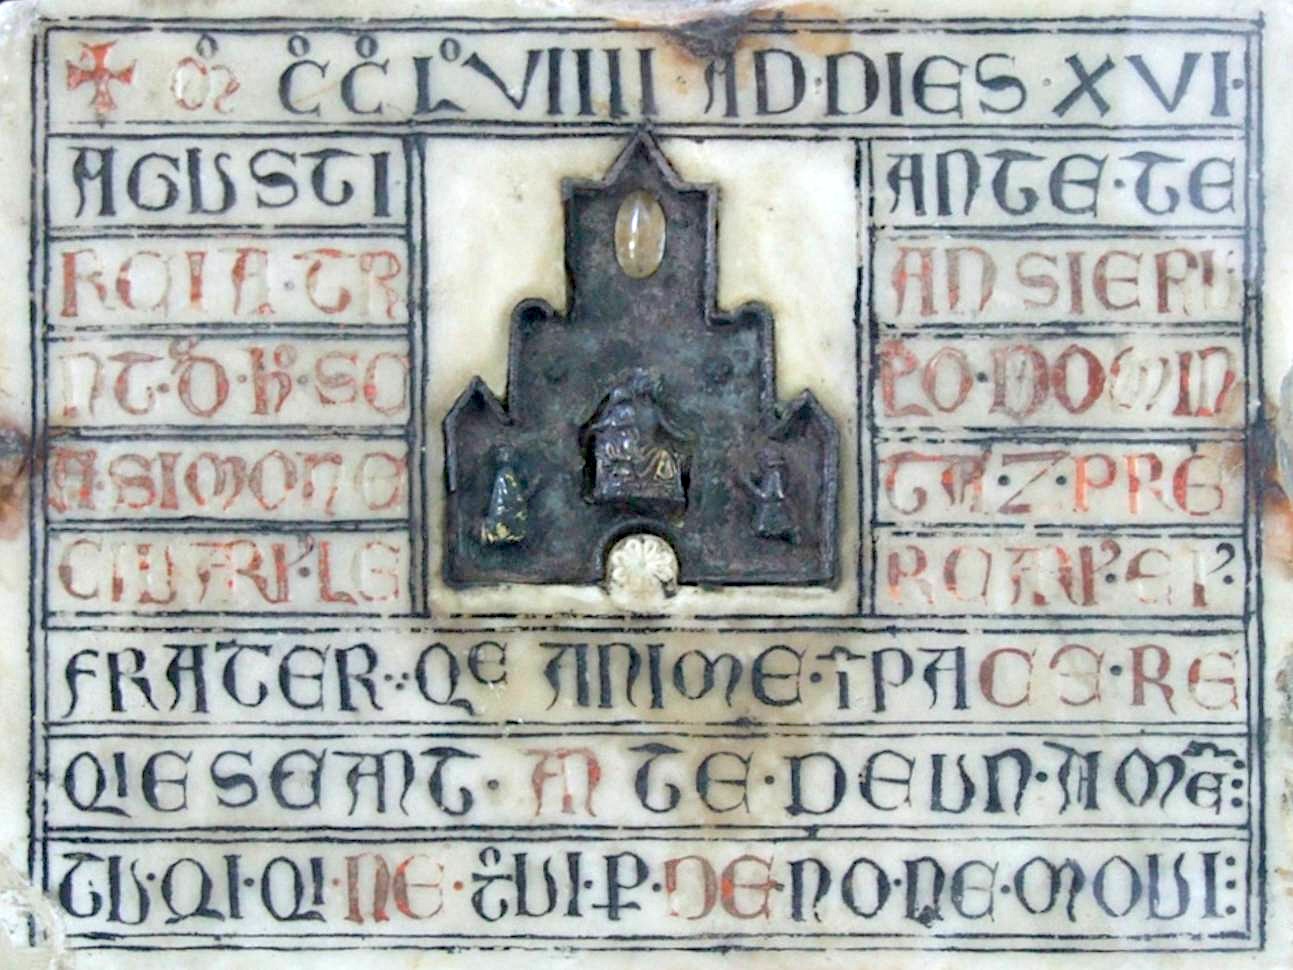 ✠ M CC LVIIII ADDIES XVI·
AGUSTI ANTE·TE
RCIA·TR AN SIERU
NT·D·H·SO PO·DOMIN
A·SIMONE TA·Z·PRE
CIUAL·LE
FRATER·QE ANIME·I PACE·RE
QIESEANT·AN TE·DEUN·AME
TUQI·QI·NE·TUI·P·DENO·NE·MOUI